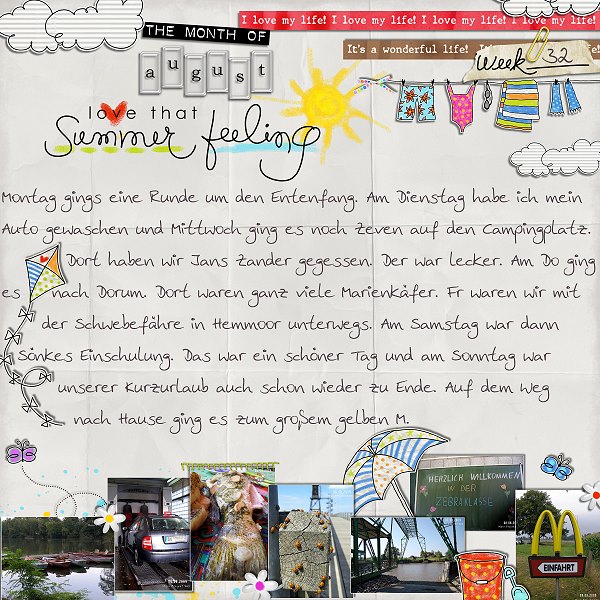 I love my life! I love my life! I love my life! I love my life!
THE MONTH OF
It's a wonderful life!
Week 32
august
love that
Summer feeling
Montag gings eine Runde um den Entenfang. Am Dienstag habe ich mein
Auto gewaschen und Mittwoch ging es noch Zeven auf den Campingplatz.
Dort haben wir Jans Zander gegessen. Der war lecker. Am Do ging
es nach Dorum. Dort waren ganz viele Marienkäfer. Fr waren wir mit
der Schwebefähre in Hemmoor unterwegs. Am Samstag war dann
Sönkes Einschulung. Das war ein schöner Tag und am Sonntag war
unserer Kurzurlaub auch schon wieder zu Ende. Auf dem Weg
nach Hause ging es zum großem gelben M.
HERZLICH WILLKOMMEN
IN DER
ZEBRAKLASSE
EINFAHRT